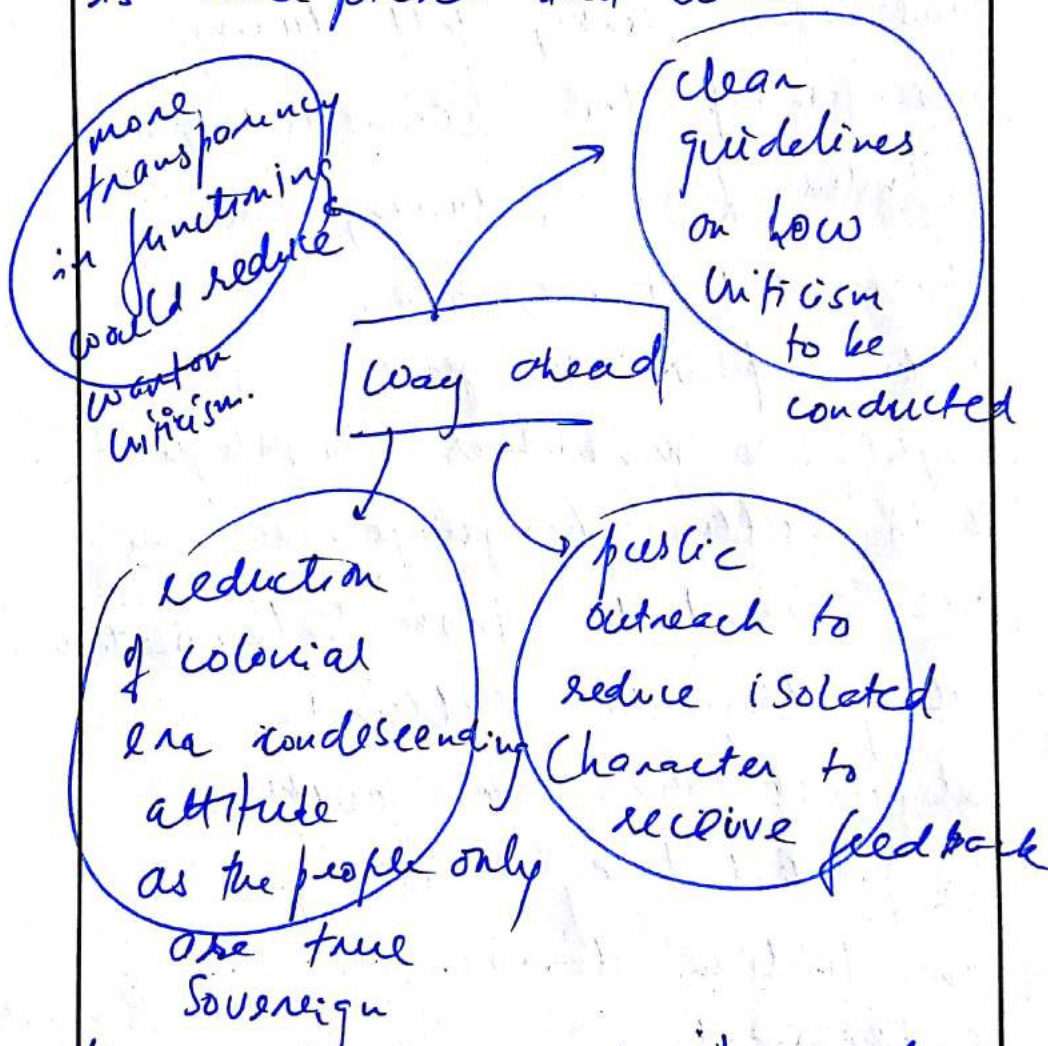 more
transparency
in functioning
would reduce
wanton
criticism.
clear
guidelines
on how
criticism
to be
conducted
Way ahead
reduction
of colonial
era condescending
attitude
as the people only
are true
Sovereign
public
outreach to
reduce isolated
Character to
receive feedback